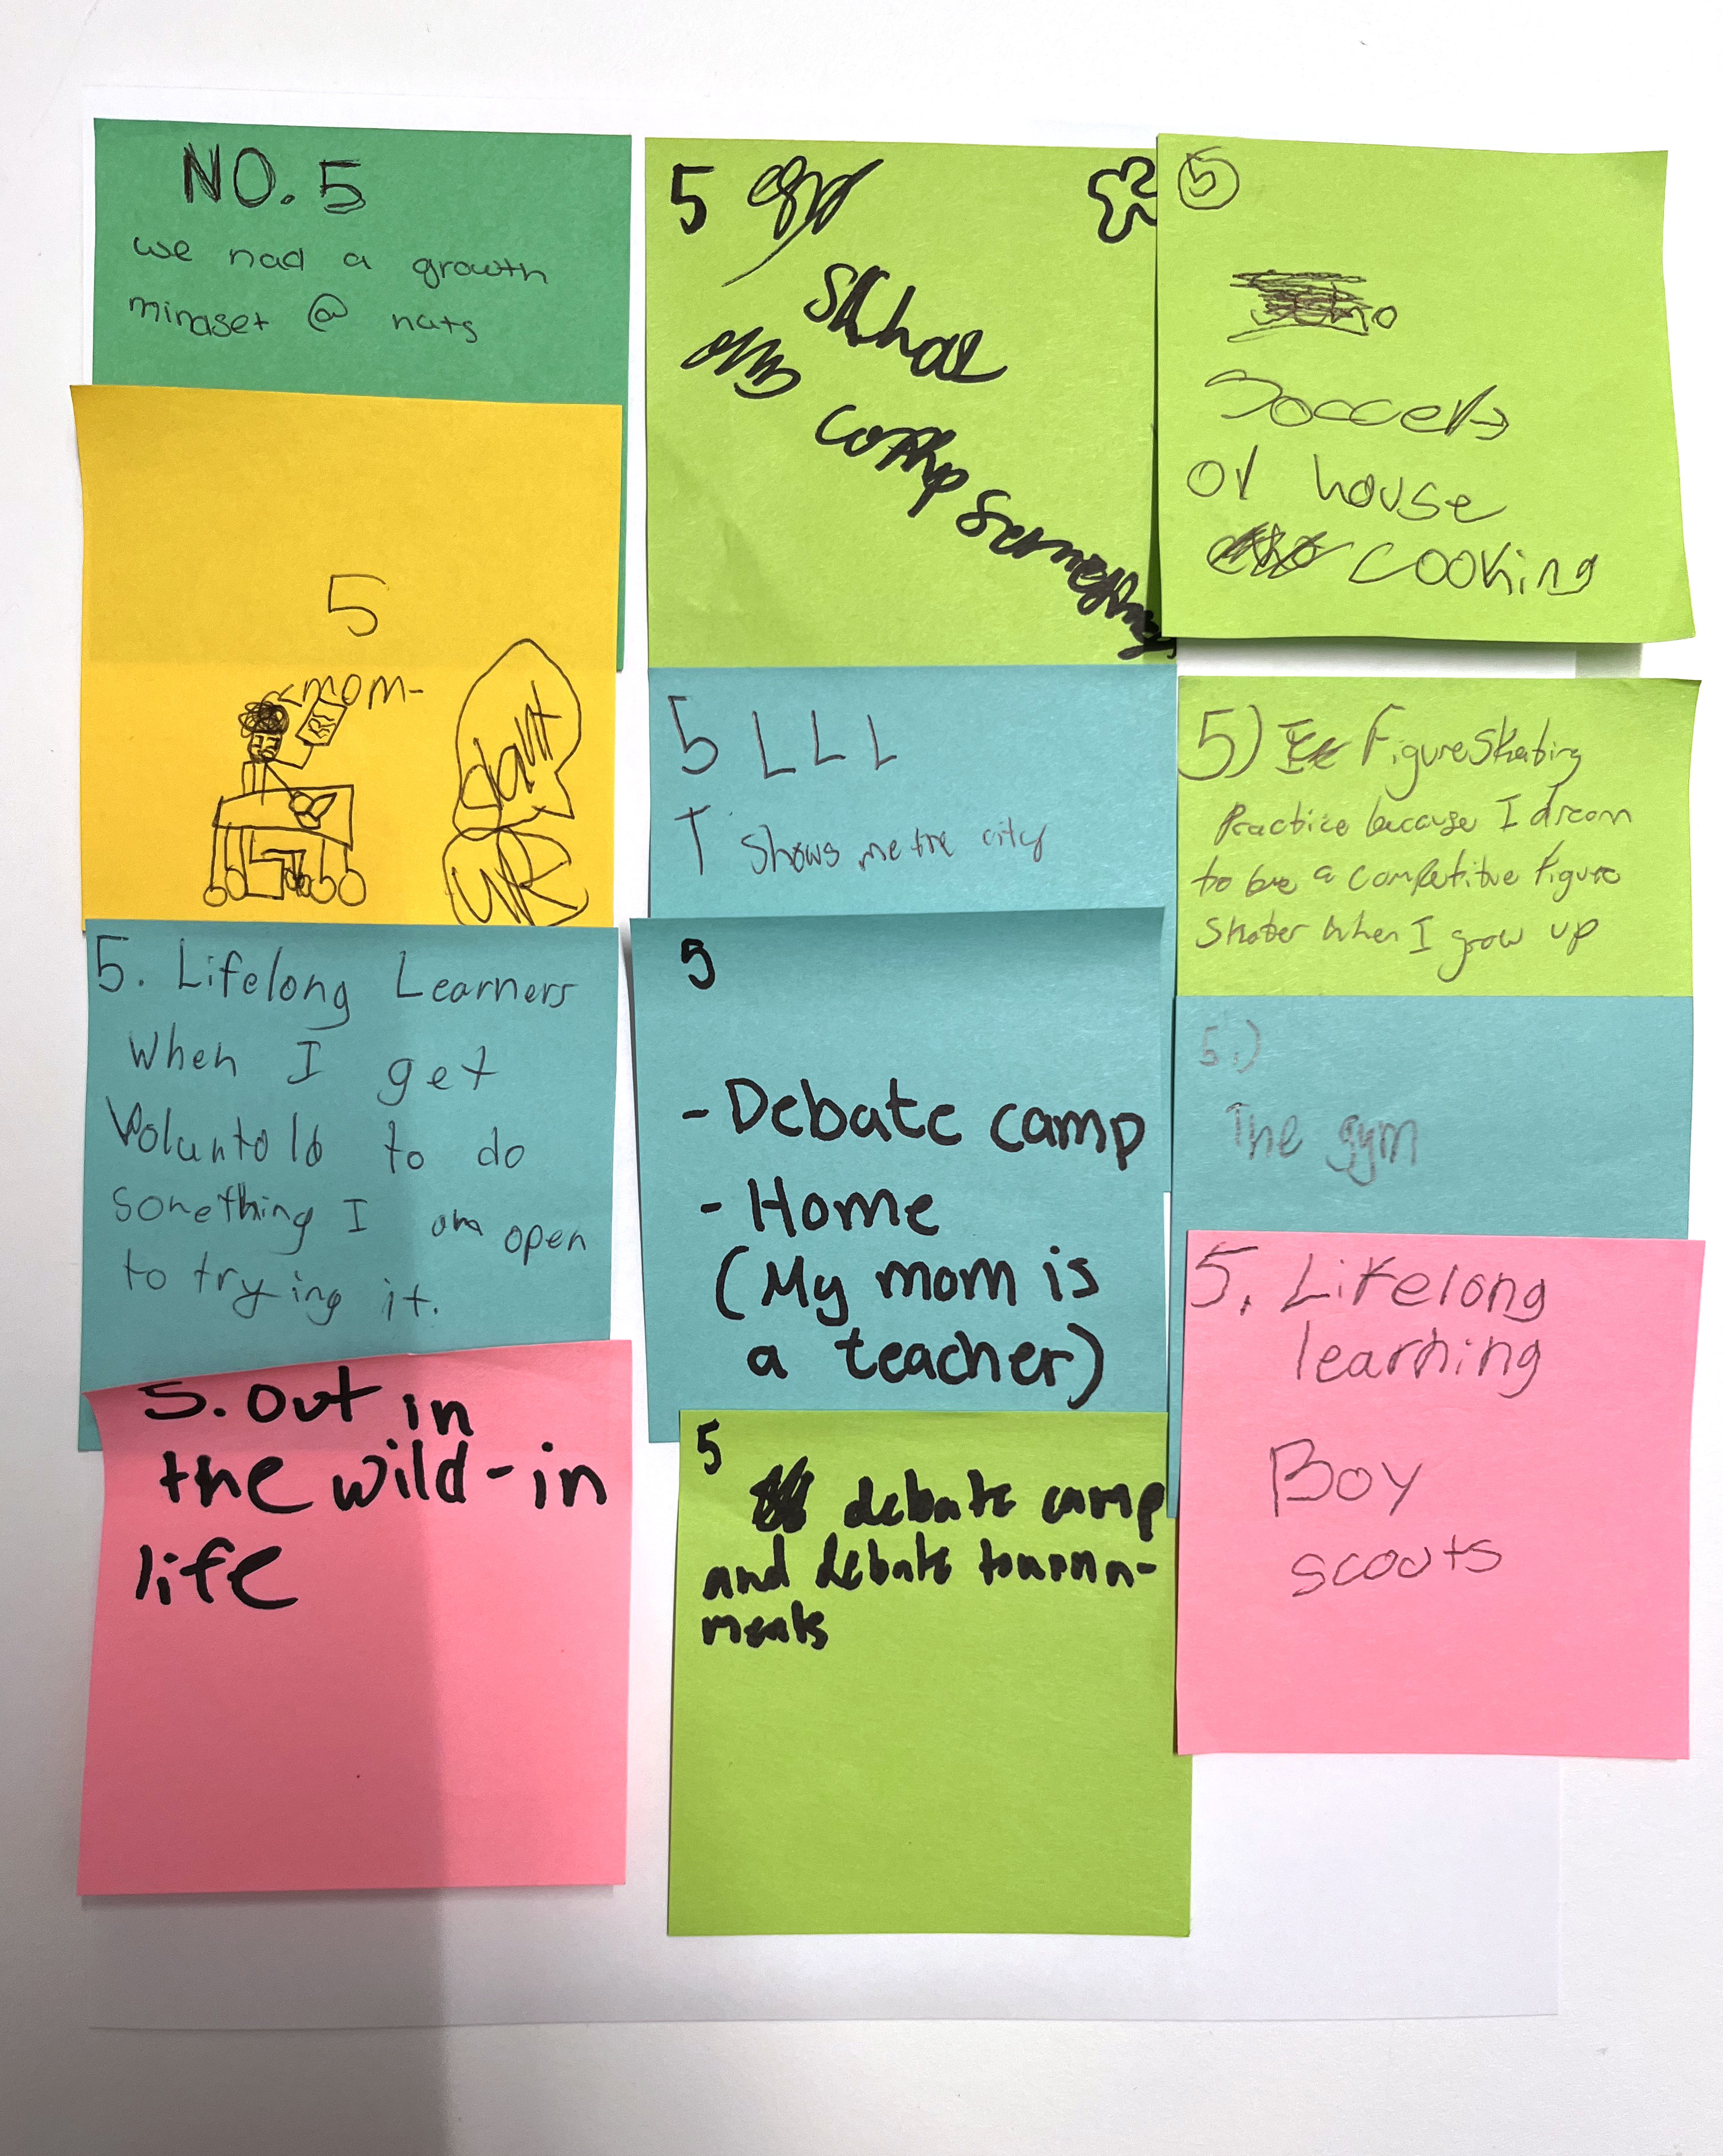 NO. 5
we had a growth
mindset @ nats
5
mom-
giant
5. Lifelong Learners
When I get
Voluntold to do
something I am open
to trying it.
5. out in
the wild - in
life
5
camp
5 LLL
T shows me the city
5
- Debate camp
- Home
(My mom is
a teacher)
5
debate camp
and debate tourna-
ments
5
Soccer
or house
cooking
5) Figure Skating
Practice because I dream
to be a competitive figure
skater when I grow up
5.)
The gym
5. Lifelong
learning
Boy
scouts